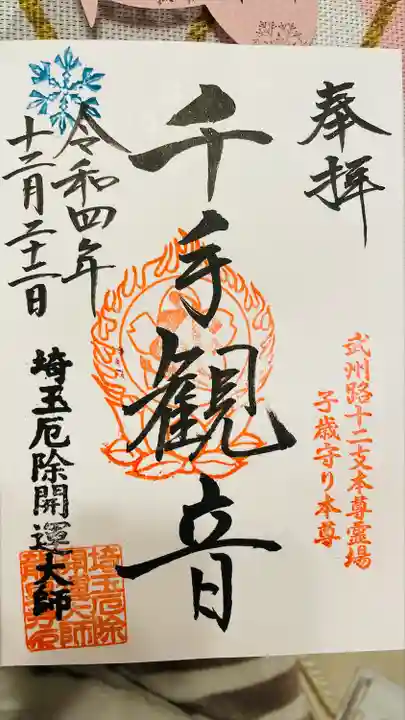 奉拝
武州路十二支本尊霊場
子歳守り本尊
千手観音
令和四年
十二月二十二日
埼玉厄除開運大師
埼玉厄除
開運大師